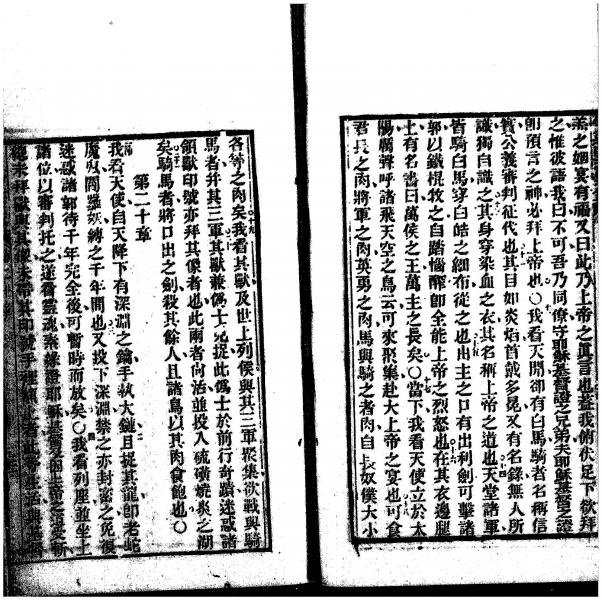 羔之婚宴有福又曰此乃上帝之眞言也葢我俯伏足下欲拜
之惟彼語我曰不可吾乃同僚守耶穌基督證之兄弟夫耶穌基督之證
卽預言之神必拜上帝也〇我看天開卻有白馬騎者名稱信
實公義審判征代也其目如炎焰首戴多冕又有名錄無人所
識獨自識之其身穿染血之衣其名稱上帝之道也天堂諸軍
皆騎白馬穿白皓之細布從之也出主之口有出利劍可擊諸
郭以鐵棍牧之自踏惱醡卽全能上帝之烈怒也在其衣邊腿
上有名書曰萬侯之王萬主之長矣〇當下我看天使立於太
陽厲聲呼諸飛天空之鳥云可來聚集赴大上帝之宴也可食
君長之肉將軍之肉英勇之肉馬與騎之者肉自長奴僕大小
各等之肉矣我看其獸及世上列侯與其三軍聚集欲戰與騎
馬者幷其三軍其獸兼僞士見捉此僞士於前行奇蹟迷惑諸
領獸印號亦拜其像者也此兩者尚活並投入硫磺燒炎之湖
矣騎馬者將口出之劍殺其餘人且諸鳥以其肉食飽也〇
第二十章
我看天使自天降下有深淵之鑰手執大鏈且捉其龍卽老蛇
魔 閻羅妖縛之千年間也又投下深淵禁之亦封密之免復
迷惑諸郭待千年完全後可暫時而放矣〇我看列座並坐上
諸位以審判托之遂看靈魂 耶穌基督 上帝之 斬
未拜獸與其像未 其印號手 者此 生活與基